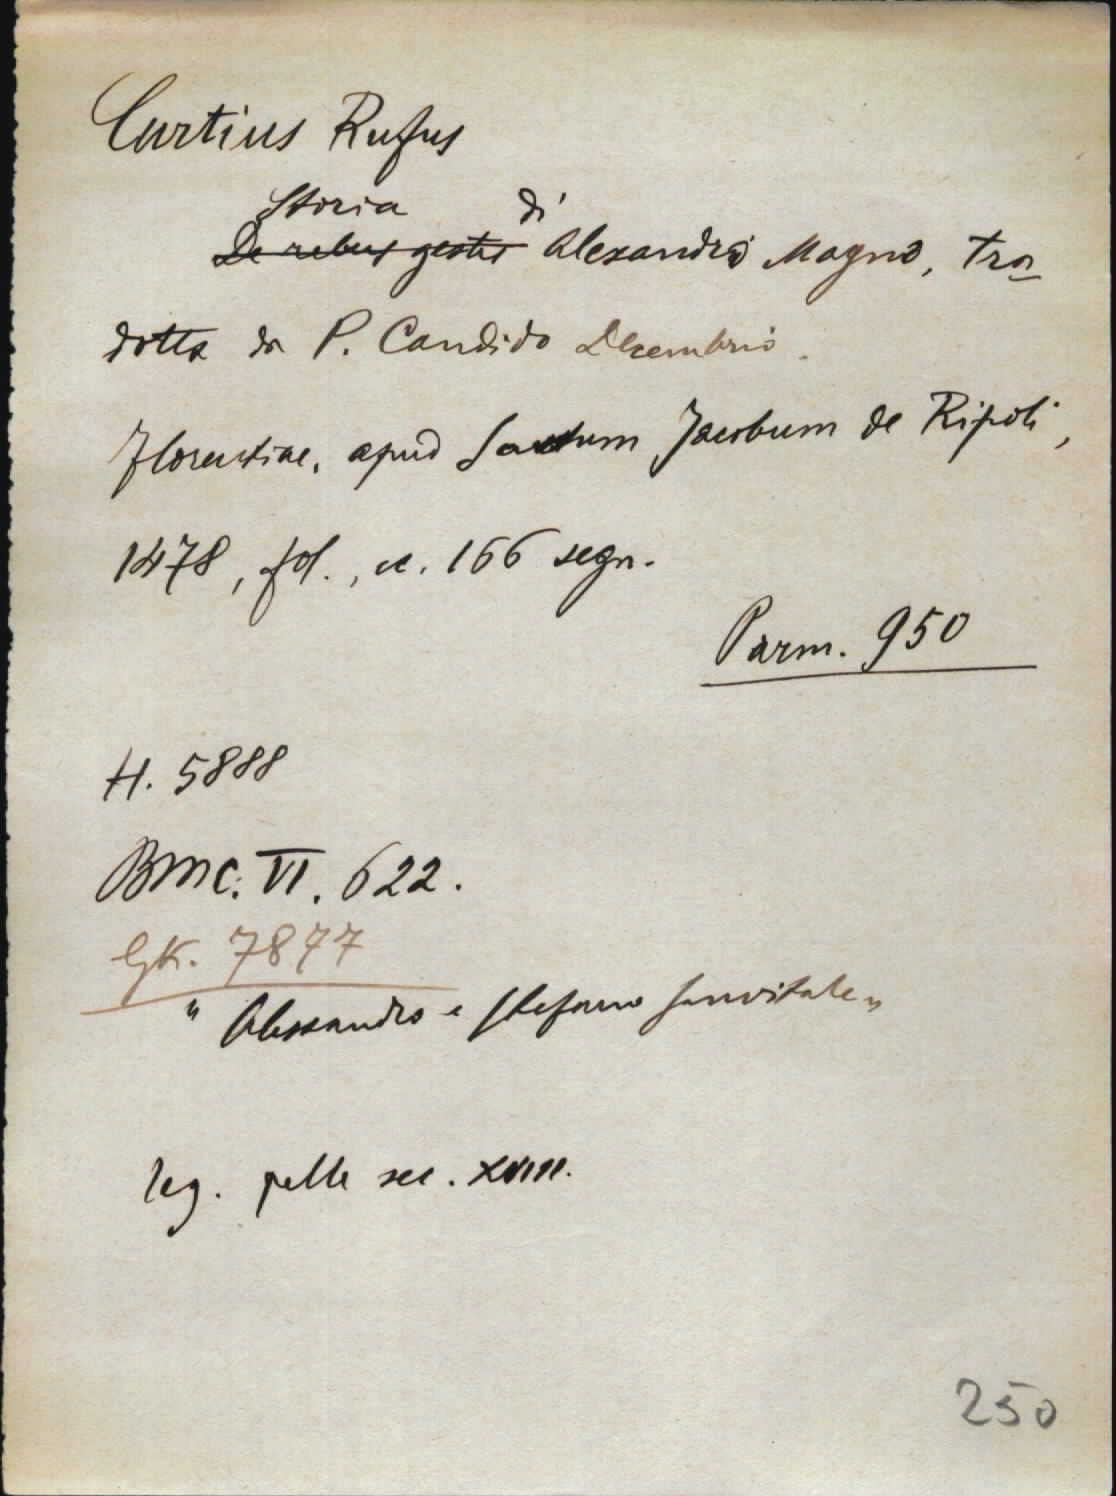 Curtius Rufus
Storia di
De rebus gestis Alexandro Magno, tra-
dotta da P. Candido Decembrio.
Florentiae, apud Sanctum Jacobum de Ripoli,
1478, fol., cc. 166 segn.
Parm. 950
H. 5888
BMC. VI. 622.
GK. 7877
" Alessandro e Stefano Sanvitale "
leg. pelle sec. XVIII.
250